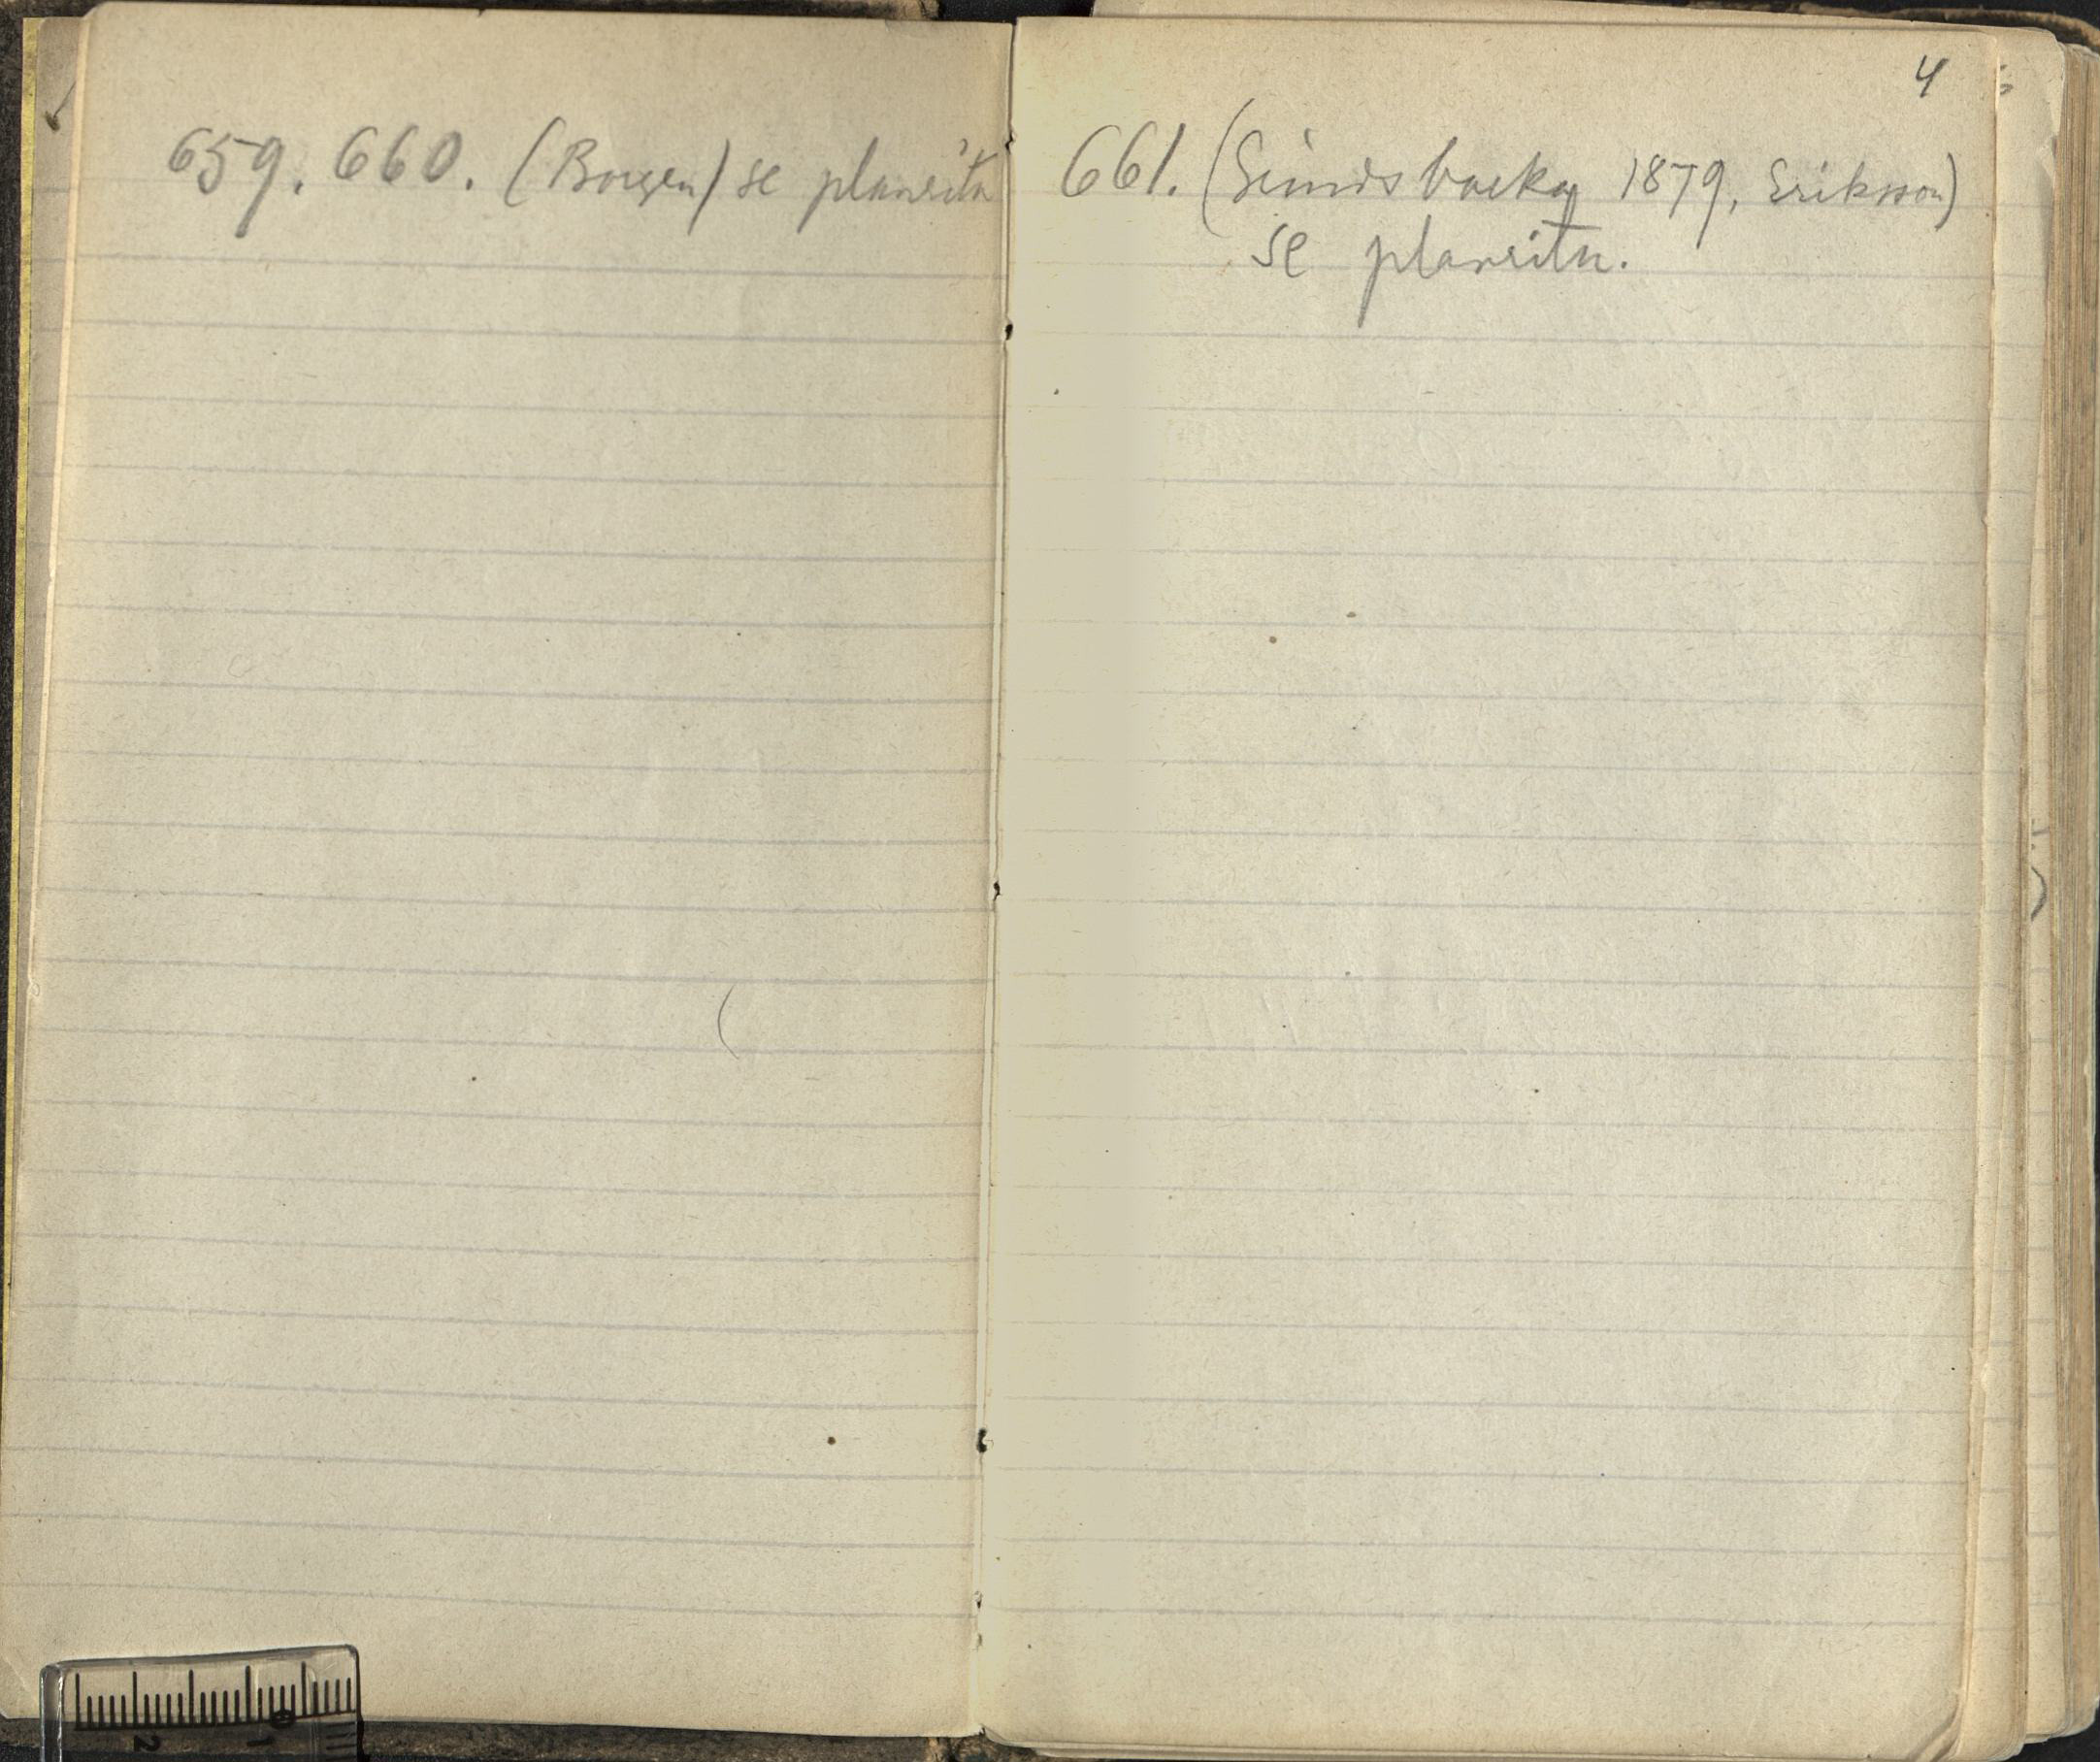 659. 660. (Borgen) se planritn
4
661. (Simisbacka 1879, Eriksson)
se planritn.